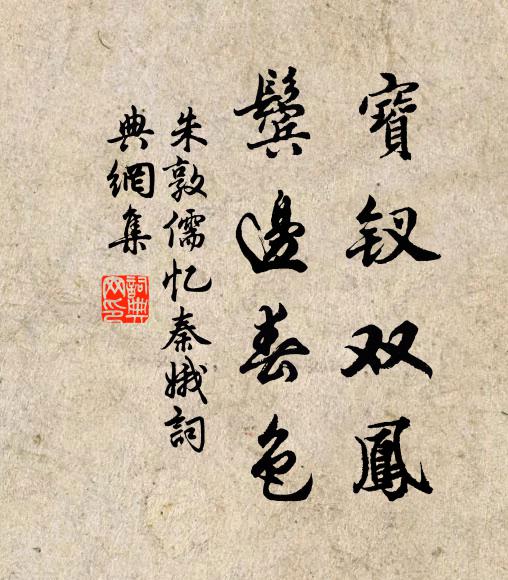 寶钗双鳳
鬓邊春色
朱敦儒忆秦娥詞
典網集
詞典網印